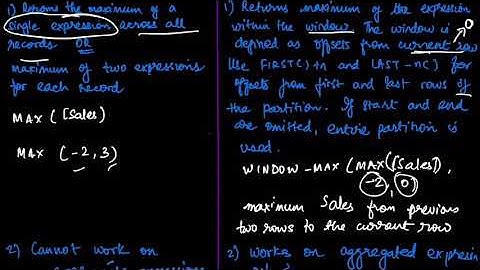 1) Returns the maximum of a
single expression across all
records OR
maximum of two expressions
for each record
MAX ([Sales)
MAX (-2, 3)
2) Cannot work on
1) Returns maximum of the expression
within the window. The window is
defined as offsets from current row
0
Use FIRST()+n and LAST-n() for
offsets from first and last rows of
the partition. If start and end
are omitted, entire partition is
used.
WINDOW-MAX (MAX([Sales]),
-2, 0)
maximum Sales from previous
two rows to the current row
2) Works on aggregated